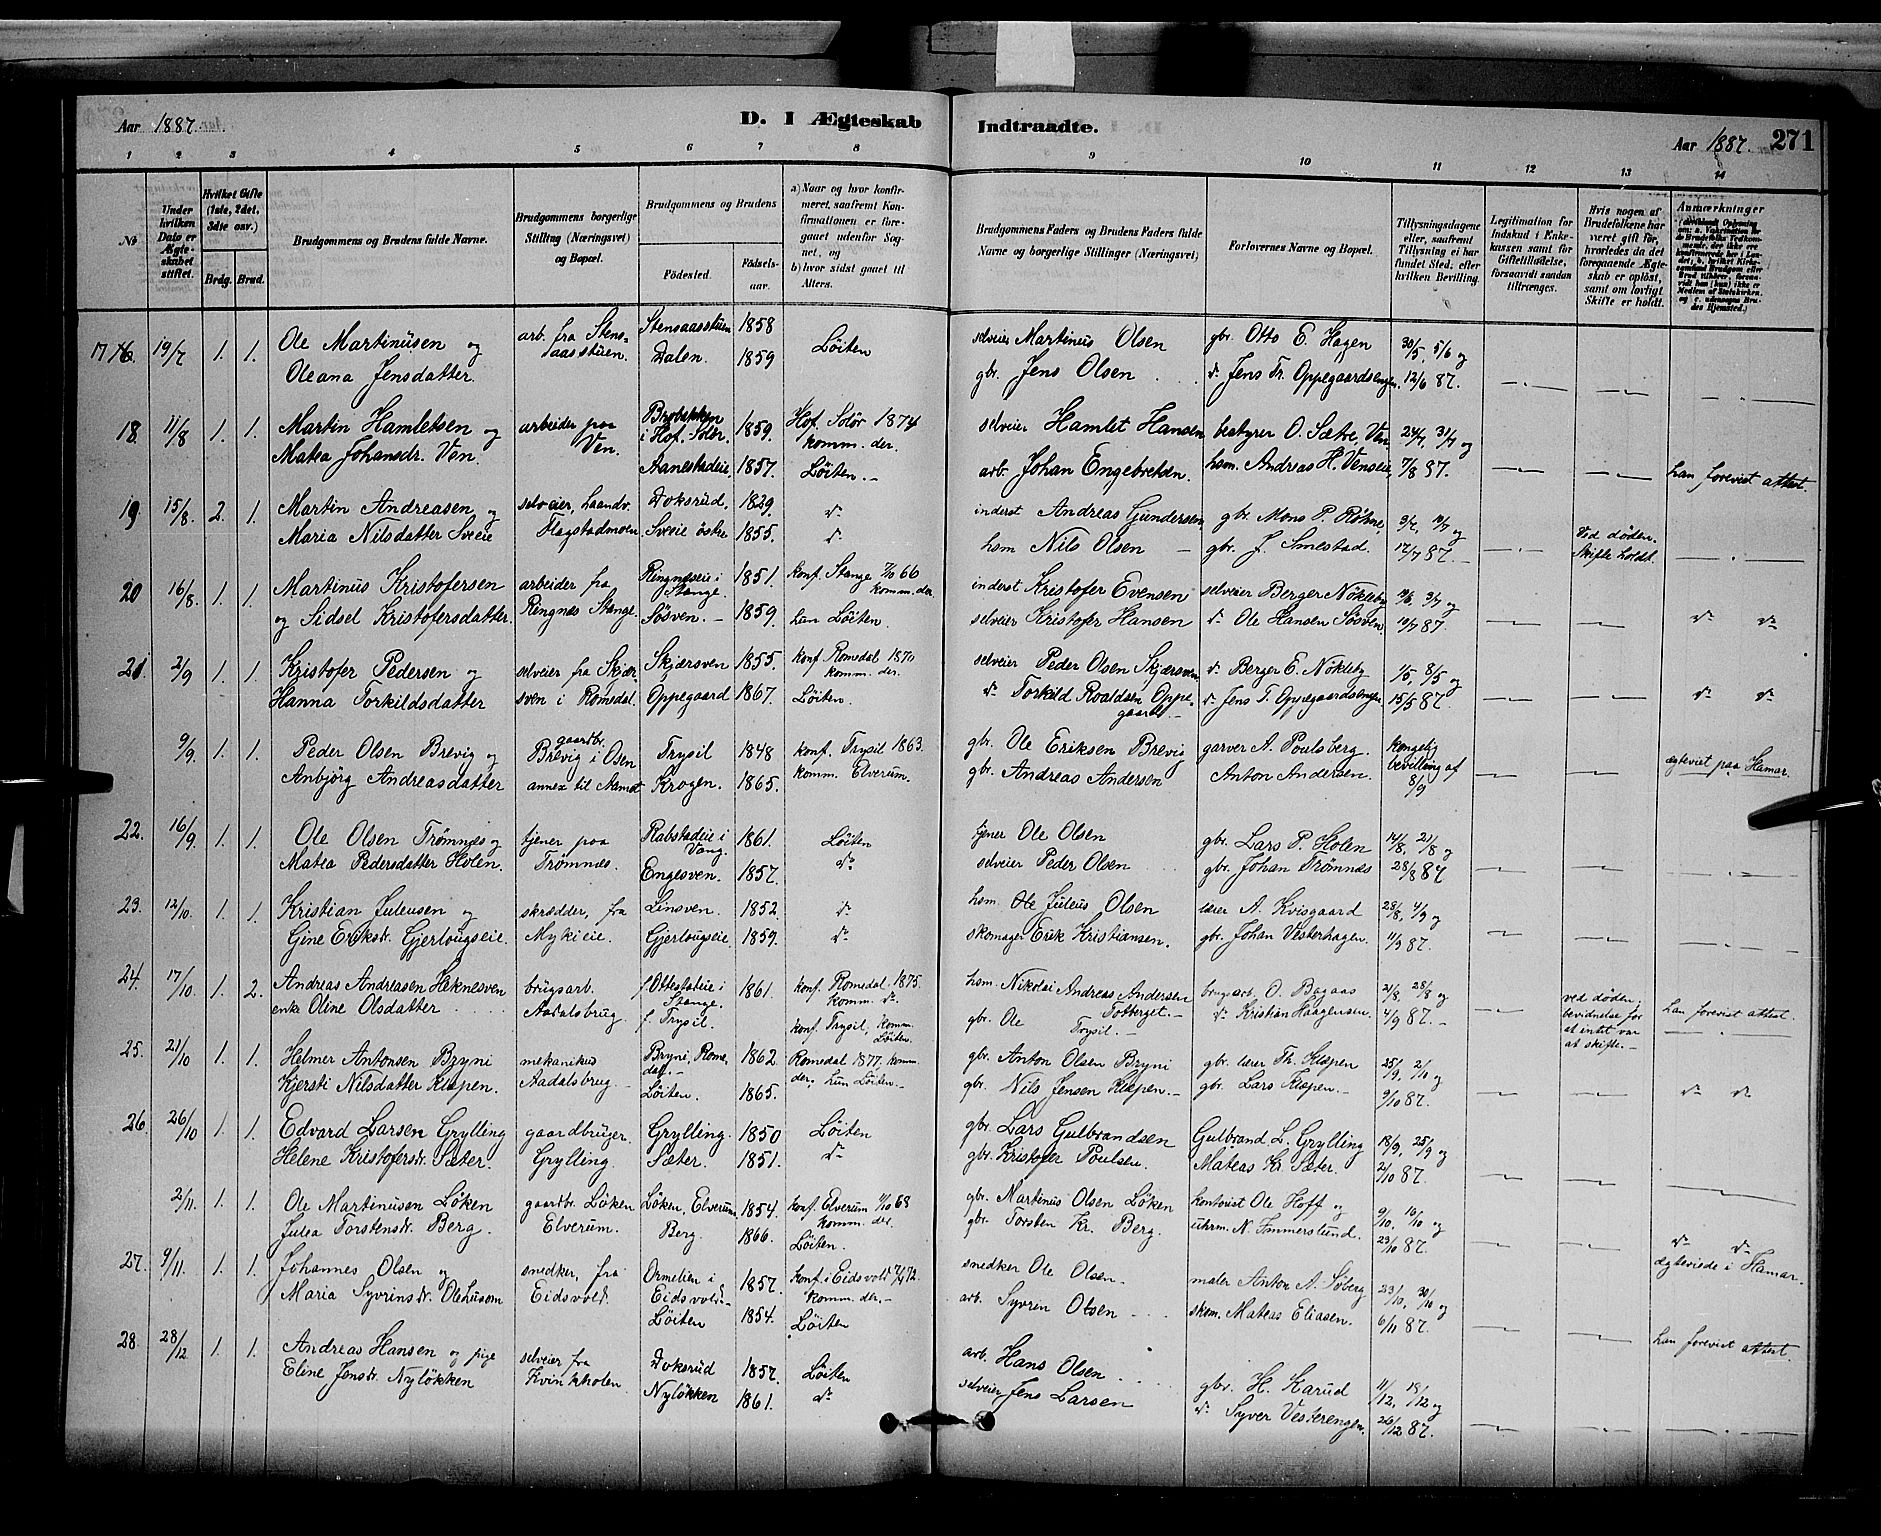 Aar 1887. D. I Ægteskab Indtraadte. Aar 1887. 271
1 2 3 4 5 6 7 8 9 10 11 12 13 14
№
Under hvilken Dato er Ægteskabet stiftet.
Hvilket Gifte (1ste, 2det, 3die osv.)
Brdg. Brud.
Brudgommens og Brudens fulde Navne.
Brudgommens borgerlige Stilling (Næringsvei) og Bopæl.
Brudgommens og Brudens
Födested. Födsels-aar.
a) Naar og hvor konfirmeret, saafremt Konfirmationen er foregaaet udenfor Sognet, og
b) hvor sidst gaaet til Alters.
Brudgommens Faders og Brudens Faders fulde Navne og borgerlige Stillinger (Næringsvei)
Forlovernes Navne og Bopæl.
Tillysningsdagene eller, saafremt Tillysning ei har fundet Sted, efter hvilken Bevilling.
Legitimation for Indskud i Enkekassen samt for Giftetilladelse, forsaavidt saadan tiltrænges.
Hvis nogen af Brudefolkene har været gift för, hvorledes da det foregaaende Ægteskab er oplöst, samt om lovligt Skifte er holdt.
Anmærkninger
17 19/7 1. 1. Ole Martinusen og arb. fra Stens- Stensaasstuen 1858 Löiten selveier Martinus Olsen gbr. Otto E. Hagen 30/5, 5/6 og
Oleana Jensdatter. aasstuen. Dalen. 1859 gbr. Jens Olsen dº Jens Tr. Oppegaardsengen. 12/6 87.
18. 11/8 1. 1. Martin Hamletsen og arbeider paa i Hof. Solör. 1859. Hof. Solör 1874 selveier Hamlet Hansen bestyrer O. Sætre, Ven 24/7, 31/7 og
Matea Johansdr. Ven. Ven. Aanestadeie 1857. komm. der. Löiten. arb. Johan Engebretsen. hsm. Andreas H. Venseie, 7/8 87. han forevist attest.
19 15/8. 2. 1. Martin Andreasen og selveier, haandv. Doksrud, 1829. dº inderst Andreas Gundersen gbr. Mons P. Röhne, 3/7, 10/7 og
Maria Nilsdatter Sveie Hagstadmoen Sveie östre 1855. dº hsm Nils Olsen gbr. J. Smestad. 17/7 87. Ved döden. Skifte holdt.
20 16/8. 1. 1. Martinus Kristofersen arbeider fra Ringnæseie i Stange. 1851. konf. Stange 7/10 66 komm. der. inderst Kristofer Evensen selveier Berger Nökleby 3/7 og
og Sidsel Kristofersdatter. Ringnæs Stange. Sösven. 1859. hun Löiten. selveier Kristofer Hansen dº Ole Hansen Sösven. 10/7 87. dº dº
21. 2/9 1. 1. Kristofer Pedersen og selveier fra Skjær- Skjærsven 1855. konf. Romedal 1870 komm. der. selveier Peder Olsen Skjærsven dº Berger E. Nökleby 1/5, 8/5 og
Hanna Torkildsdatter sven i Romedal. Oppegaard 1867. Löiten. dº Torkild Roaldsen Oppegaard. dº Jens T. Oppegaardsengen 15/5 87. dº dº
9/9. 1. 1. Peder Olsen Brevig og gaardbr. Brevig i Osen Trysil 1848 konf. Trysil 1863. gbr. Ole Eriksen Brevig garver A. Poulsberg. Kongelig
Anbjörg Andreasdatter annex til Aamot Krogen. 1865. komm. Elverum. gbr. Andreas Andersen Anton Andersen. bevilling af 8/9 ægteviet paa Hamar.
22. 16/9. 1. 1. Ole Olsen Trömnes og tjener paa Rabstadeie i Vang. 1861. Löiten tjner Ole Olsen gbr. Lars P. Holen 14/8, 21/8 og
Matea Pedersdatter Holen. Trömnæs. Engesven. 1857. dº selveier Peder Olsen gbr. Johan Trömnæs 28/8 87
23. 12/10. 1. 1. Kristian Juleusen og skrædder, fra Linsven. 1852. dº hsm. Ole Juleus Olsen lærer A. Kvisgaard 28/8, 4/9 og
Gine Eriksdr. Gjerlougseie. Mykieie. Gjerlougseie. 1859. dº skomager Erik Kristiansen. gbr. Johan Vesterhagen. 11/9 87.
24. 17/10. 1. 2. Andreas Andreasen Heknesven brugsarb. f. Ottestadeie i Stange. 1861. konf. Romedal 1875. komm. dº hsm. Nikolai Andreas Andersen brugsarb. O. Bagaas 21/8, 28/8 og
enke Oline Olsdatter Aadalsbrug. f. Trysil. konf. Trysil, komm. Löiten. gbr. Ole Trysil. dº Kristian Haagensen. 4/9 87. ved döden, bevidnelse for at intet var at skifte. han forevist attest.
25. 21/10 1. 1. Helmer Antonsen Bryni mekanikus Bryni, Romedal. 1862 Romedal 1877, komm. gbr. Anton Olsen Bryni gbr. lærer Th. Klæpen 25/9, 2/10 og
Kjersti Nilsdatter Klæpen. Aadalsbrug. Löiten. 1865. der, hun Löiten. gbr. Nils Jensen Klæpen. gbr. Lars Klæpen. 9/10 87. dº dº
26. 26/10 1. 1. Edvard Larsen Grylling gaardbruger. Grylling. 1850 Löiten gbr. Lars Gulbrandsen Gulbrand L. Grylling 18/9, 25/9 og
Helene Kristofersdr. Sæter. Grylling. Sæter. 1851. dº gbr. Kristofer Poulsen. Mateas Kr. Sæter. 2/10 87.
2/11. 1. 1. Ole Martinusen Löken gaardbr. Löken Löken, Elverum. 1854. konf. Elverum 68 komm. der. gbr. Martinus Olsen Löken kontorist Ole Hoff og 9/10, 16/10 og
Julea Torstensdr. Berg. Elverum. Berg. 1866. Löiten. gbr. Torsten Kr. Berg. uhrm. N. Ammerstund. 23/10 87. dº dº
ægteviede i Hamar.
27. 9/11. 1. 1. Johannes Olsen og snedker, fra Ormelien i Eidsvold. 1857. konf. i Eidsvold 72. komm. der. snedker Ole Olsen maler Anton A. Söberg 23/10, 30/10 og
Maria Syvrinsdr. Olehusom Eidsvold. Löiten 1854. Löiten arb. Syvrin Olsen skom. Mateas Eliasen. 6/11 87. han forevist attest.
28. 28/12 1. 1. Andreas Hansen og pige selveier fra Doksrud 1857. Löiten arb. Hans Olsen gbr. H. Karud 11/12, 18/12 og
Eline Jensdr. Nylökken Kvinkholen. Nylökken 1861. dº selveier Jens Larsen dº Syver Vesterengen. 26/12 87.